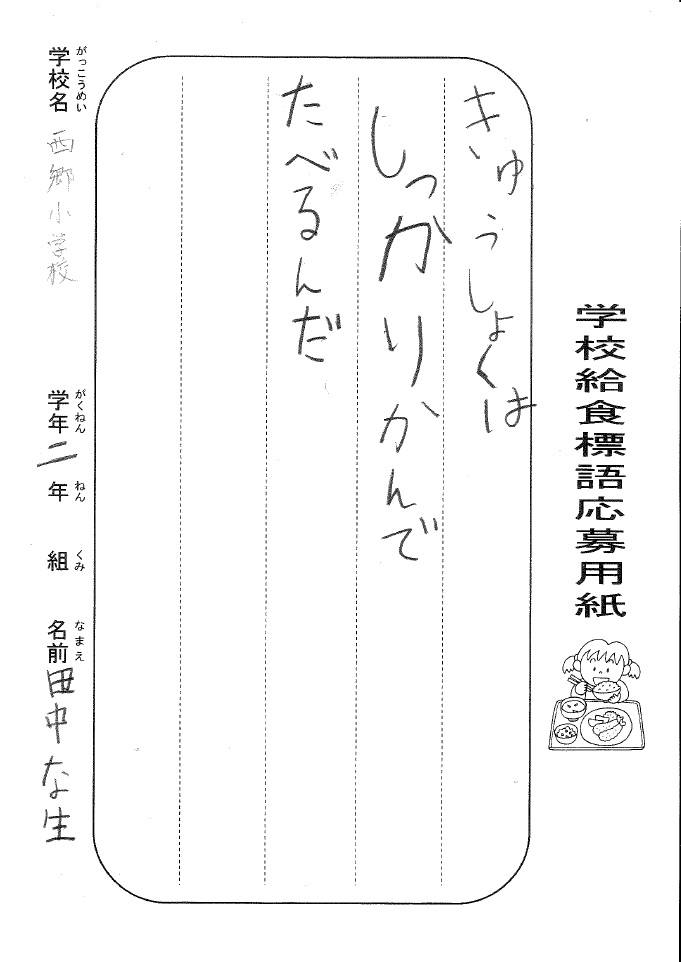 学校給食標語応募用紙
きゅうしょくは
しっかりかんで
たべるんだ
がっこうめい
学校名 西郷小学校
がくねん ねん くみ
学年 二 年 組
なまえ
名前 田中な生